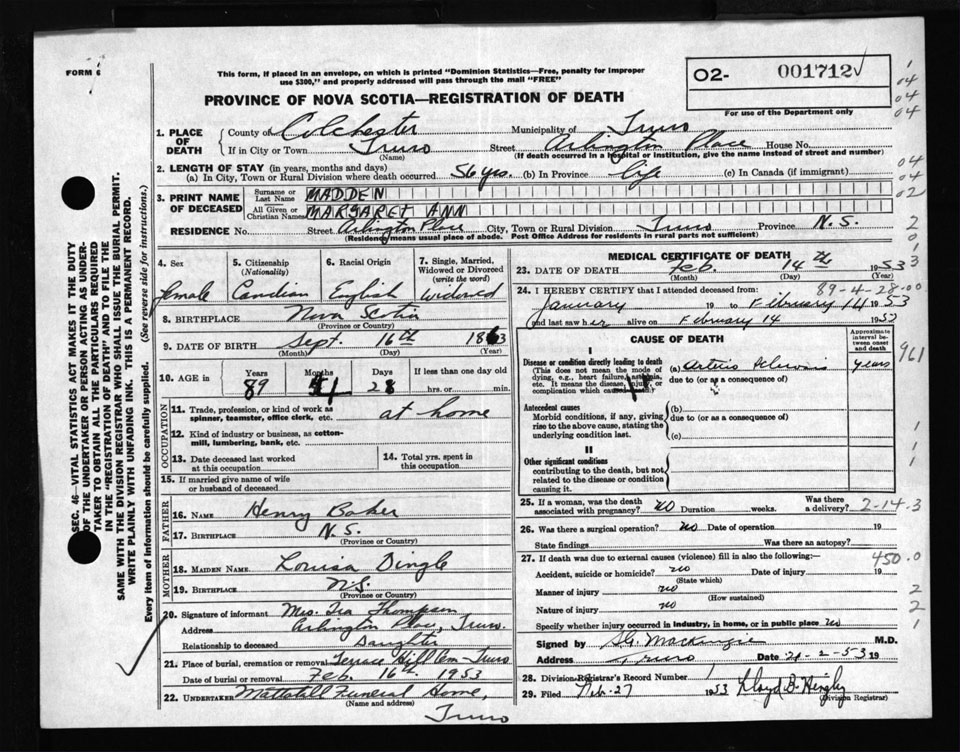 FORM 6
This form, if placed in an envelope, on which is printed "Dominion Statistics—Free, penalty for improper use $300," and properly addressed will pass through the mail "FREE"
PROVINCE OF NOVA SCOTIA—REGISTRATION OF DEATH
O2- 001712
For use of the Department only
04
04
04
SEC. 46—VITAL STATISTICS ACT MAKES IT THE DUTY
OF THE UNDERTAKER OR PERSON ACTING AS UNDER-
TAKER TO OBTAIN ALL THE PARTICULARS REQUIRED
IN THE "REGISTRATION OF DEATH" AND TO FILE THE
SAME WITH THE DIVISION REGISTRAR WHO SHALL ISSUE THE BURIAL PERMIT.
WRITE PLAINLY WITH UNFADING INK. THIS IS A PERMANENT RECORD.
Every item of Information should be carefully supplied. (See reverse side for instructions.)
1. PLACE OF DEATH
County of Colchester Municipality of Truro
If in City or Town Truro Street Arlington Place House No.
(Name) (If death occurred in a hospital or institution, give the name instead of street and number)
2. LENGTH OF STAY (in years, months and days)
(a) In City, Town or Rural Division where death occurred 56 yrs. (b) In Province life (c) In Canada (if immigrant)
04
04
3. PRINT NAME OF DECEASED
Surname or Last Name MADDEN
02
All Given or Christian Names MARGARET ANN
RESIDENCE No. Street Arlington Place City, Town or Rural Division Truro Province N.S.
2
(Residence means usual place of abode. Post Office Address for residents in rural parts not sufficient)
4. Sex female
5. Citizenship (Nationality) Candian
6. Racial Origin English
7. Single, Married, Widowed or Divorced (write the word) Widowed
8. BIRTHPLACE Nova Scotia
(Province or Country)
9. DATE OF BIRTH Sept. 16th 1863
(Month) (Day) (Year)
10. AGE in Years 89 Months 4 Days 28 If less than one day old hrs. or min.
OCCUPATION
11. Trade, profession, or kind of work as spinner, teamster, office clerk, etc. at home
12. Kind of industry or business, as cotton-mill, lumbering, bank, etc.
13. Date deceased last worked at this occupation
14. Total yrs. spent in this occupation
15. If married give name of wife or husband of deceased
FATHER
16. NAME Henry Baker
17. BIRTHPLACE N.S.
(Province or Country)
MOTHER
18. MAIDEN NAME Louisa Dingle
19. BIRTHPLACE N.S.
(Province or Country)
20. Signature of informant Mrs. Ira Thompson
Address Arlington Place, Truro.
Relationship to deceased Daughter
21. Place of burial, cremation or removal Terrace Hill Cem- Truro
Date of burial or removal Feb. 16th 1953
22. UNDERTAKER Mattatall Funeral Home,
(Name and address)
Truro
MEDICAL CERTIFICATE OF DEATH
23. DATE OF DEATH Feb. 14th 1953
(Month) (Day) (Year)
3
89-4-28-00
24. I HEREBY CERTIFY that I attended deceased from:
January 19 to February 14 1953
and last saw her alive on February 14 1953
CAUSE OF DEATH
Approximate interval between onset and death
961
I
Disease or condition directly leading to death
(This does not mean the mode of dying, e.g., heart failure, asthenia, etc. It means the disease, injury or complication which caused death.)
(a) Arterio Sclerosis years
due to (or as a consequence of)
Antecedent causes
Morbid conditions, if any, giving rise to the above cause, stating the underlying condition last.
(b)
due to (or as a consequence of)
(c)
1
1
II
Other significant conditions
contributing to the death, but not related to the disease or condition causing it.
25. If a woman, was the death associated with pregnancy? no Duration weeks. Was there a delivery?
2-14-3
26. Was there a surgical operation? no Date of operation 19
State findings Was there an autopsy?
27. If death was due to external causes (violence) fill in also the following:—
450.0
Accident, suicide or homicide? no Date of injury 19
(State which)
Manner of injury no
2
(How sustained)
Nature of injury no
2
Specify whether injury occurred in industry, in home, or in public place no
1
Signed by S.G. MacKenzie M.D.
Address Truro Date 21-2-53 19
28. Division Registrar's Record Number
29. Filed Feb. 27 1953
(Division Registrar)